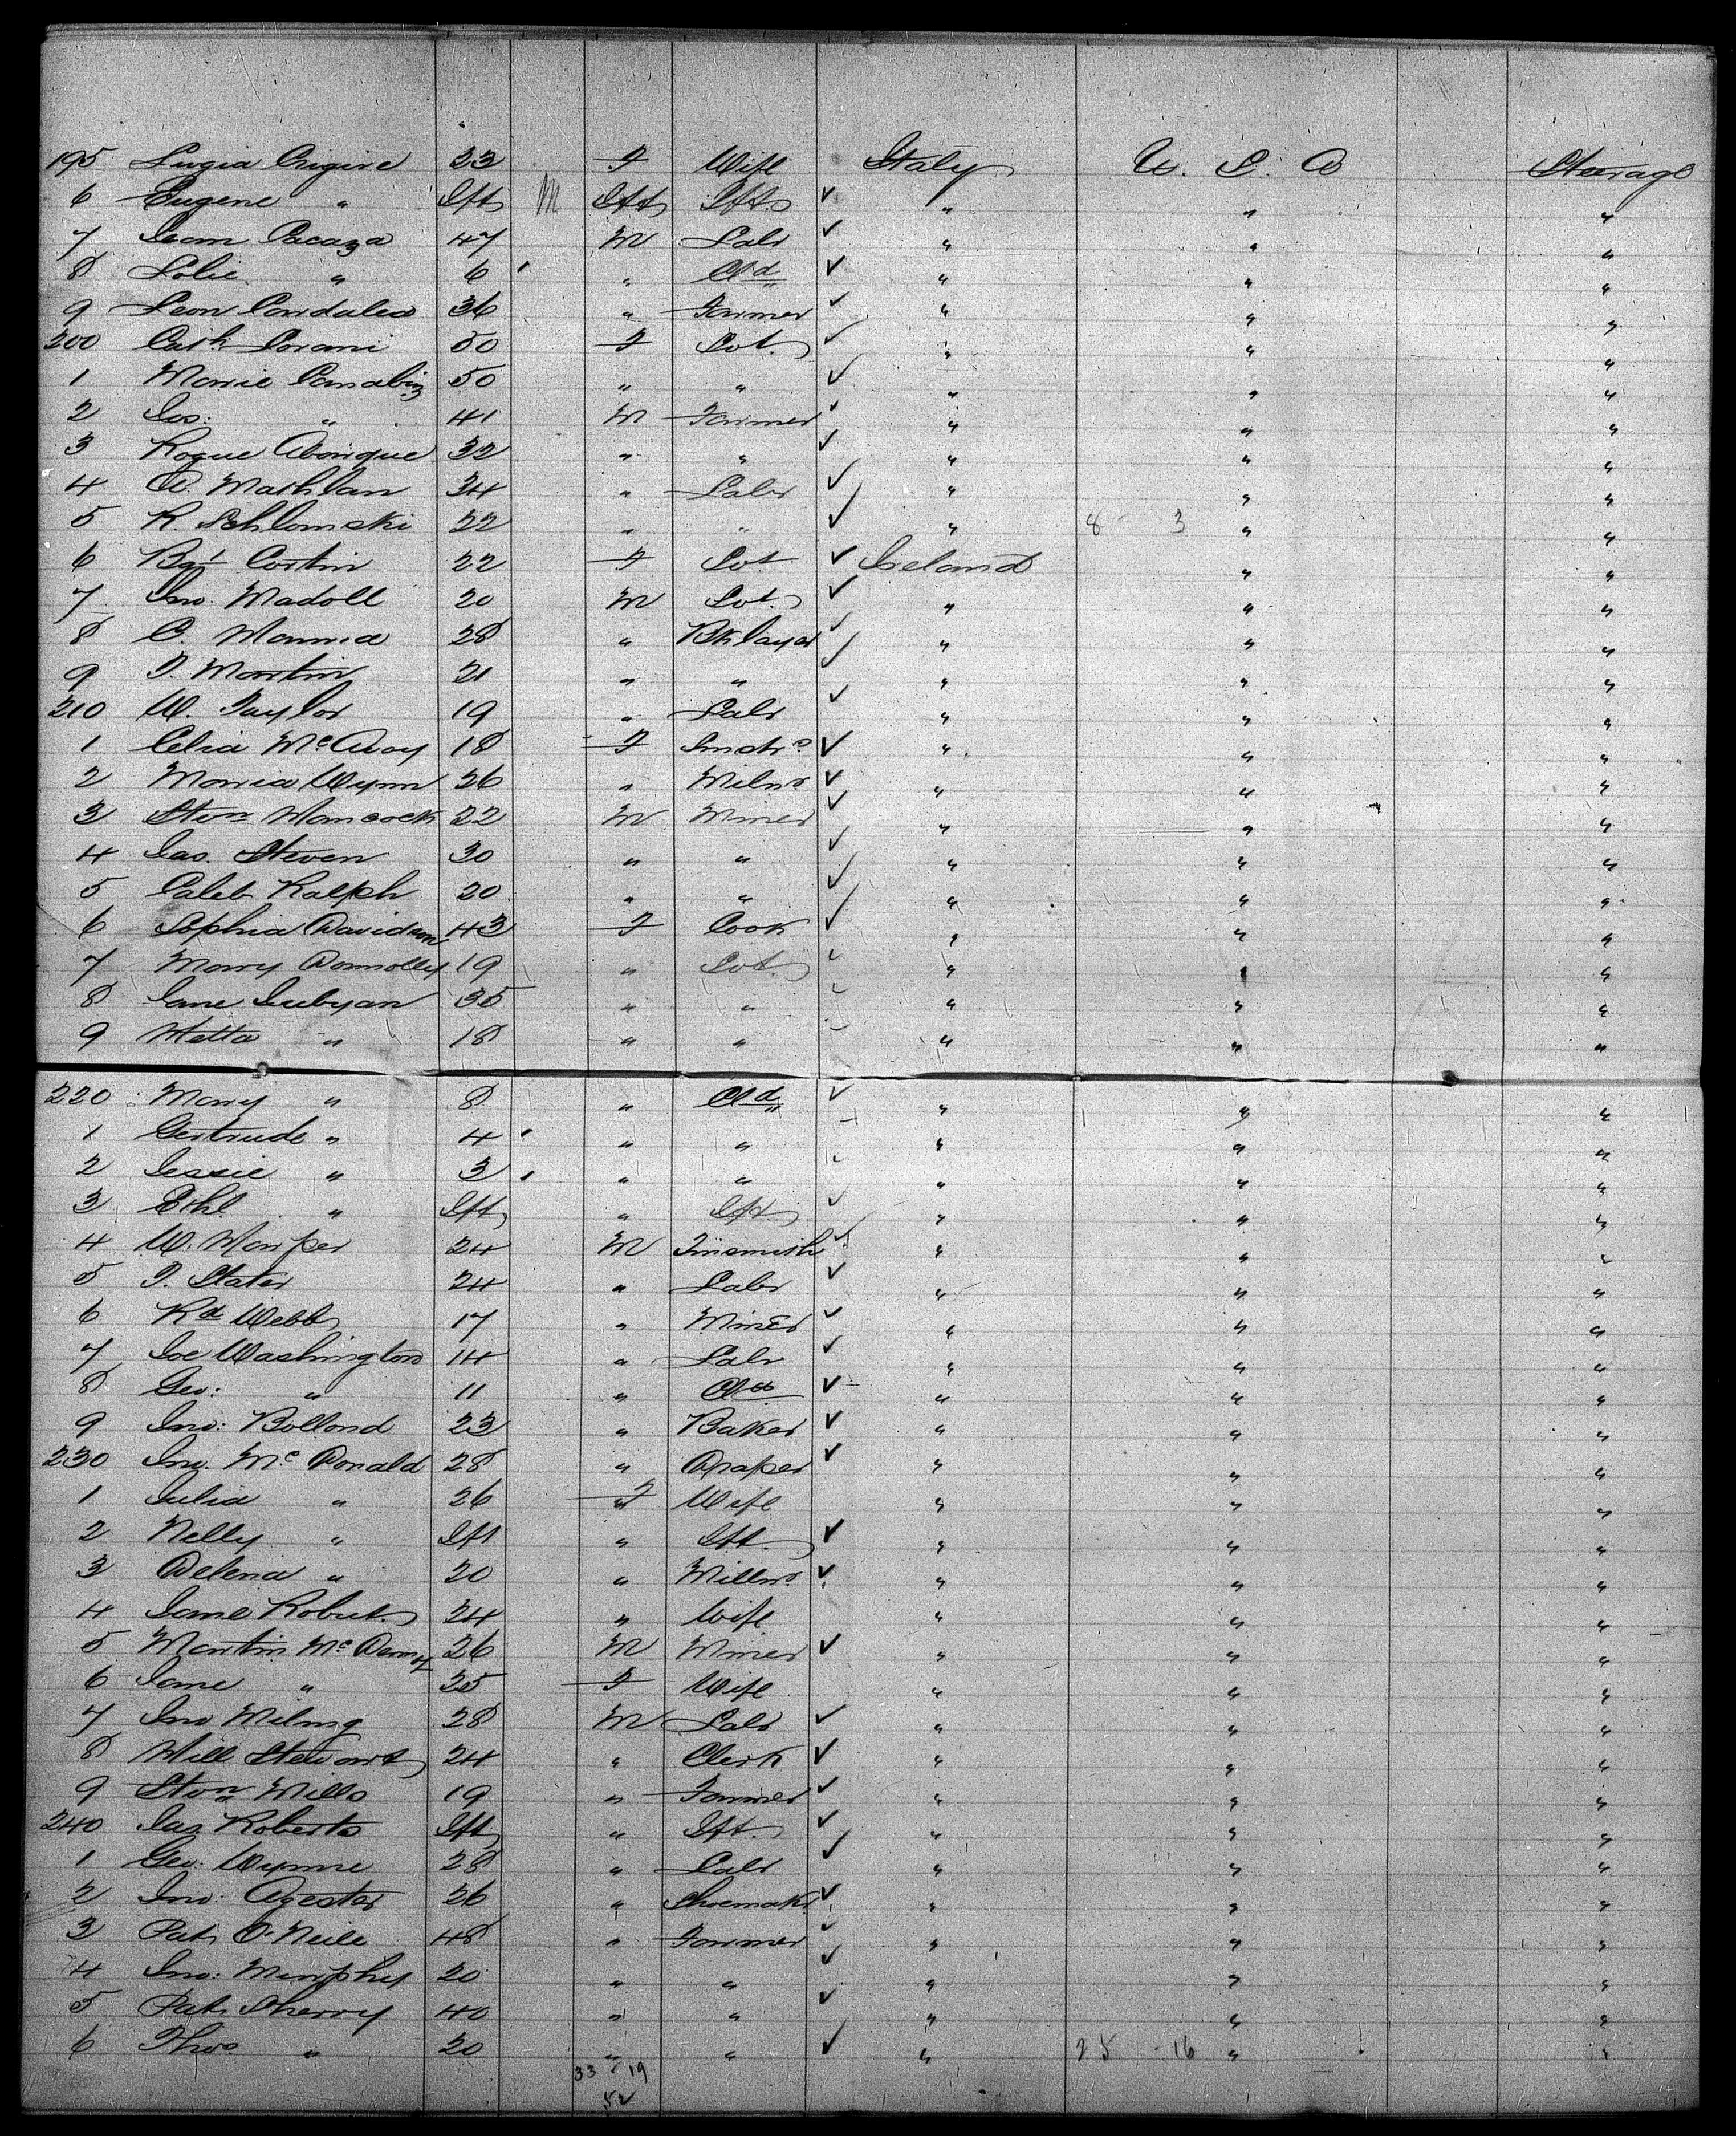 195 Luigia 23 F Wife Italy U. S. A Steerage
6 Eugene " Ift M Ift Ift ✓ " " "
7 47 M Labr ✓ " " "
8 " 6 " Cld ✓ " " "
9 Leon 36 " Farmer ✓ " " "
200 Cath 50 F Spt. ✓ " " "
1 Marie 50 " " ✓ " " "
2 Jos: " 41 M Farmer ✓ " " "
3 Rogue 32 " " ✓ " " "
4 A. Mathlan 34 " Labr ✓ " " "
5 R. Schlomski 22 " " ✓ " 8 3 " "
6 Bgt Cortin 22 F Spt ✓ Ireland " "
7 Jno. Madoll 20 M Spt. ✓ " " "
8 C. 28 " Bklayer ✓ " " "
9 T. Martin 21 " " ✓ " " "
210 W. Taylor 19 " Labr ✓ " " "
1 Celia McAvoy 18 F ✓ " " "
2 Maria Wynn 26 " Milnr ✓ " " "
3 Stepn Hancock 22 M Miner ✓ " " "
4 Jas. Steven 30 " " ✓ " " "
5 Caleb Ralph 20 " " ✓ " " "
6 Sophia Davidson 43 F Cook ✓ " " "
7 Mary Donnolly 19 " Spt. ✓ " " "
8 Jane Jubyan 35 " " ✓ " " "
9 Hetta " 18 " " " " "
220 Mary " 8 " Cld ✓ " " "
1 Gertrude " 4 " " " " "
2 Jessie " 3 " " ✓ " " "
3 Ethl " Ift " Ift ✓ " " "
4 W. Harper 24 M Tinsmith ✓ " " "
5 T. Slater 24 " Labr ✓ " " "
6 Rd Webb 17 " Miner ✓ " " "
7 Joe Washington 14 " Labr ✓ " " "
8 Geo: " 11 " Cld ✓ " " "
9 Jno: Bolland 23 " Baker ✓ " " "
230 Jno. McDonald 28 " Draper ✓ " " "
1 Julia " 26 F Wife " " "
2 Nelly " Ift " Ift. ✓ " " "
3 Delena " 20 " Millnr. ✓ " " "
4 Jane Robert 24 " Wife " " "
5 Martin Mc 26 M Miner ✓ " " "
6 Jane " 25 F Wife " " "
7 Jno 28 M Labr ✓ " " "
8 Will Stewart 24 " Clerk ✓ " " "
9 Stepn Mills 19 " Farmer ✓ " " "
240 Jas Roberts Ift " Ift. ✓ " " "
1 Geo. Wynne 28 " Labr ✓ " " "
2 Jno: Agester 26 " Shoemakr ✓ " " "
3 Pat O'Neile 48 " Farmer ✓ " " "
4 Jno: Murphy 20 " " ✓ " " "
5 Pat Sherry 40 " " ✓ " " "
6 Thos " 20 " " ✓ " 25 - 16 " "
33 19
52